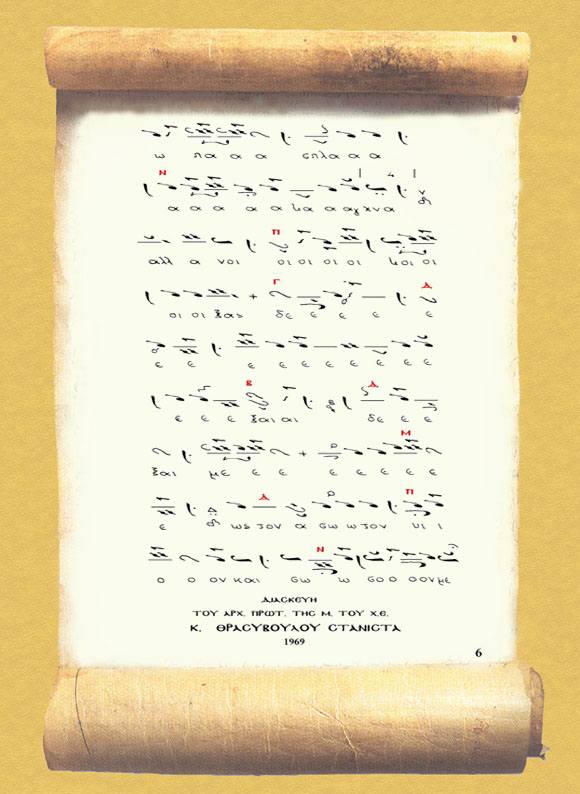 ω πα α α σπλα α α
Ν
α α α α α κα α αγ χνα
Π
αλλ α νοι οι οι οι οι κοι οι
Γ Δ
οι οι ξας δε ε ε ε ε
ε ε ε ε ε ε ε ε ε ε
Β Δ
ε ε ε ξαι αι δε ε ε
Μ
ξαι με ε ε ε ε ε ε ε
Δ Π
ε ως τον α σω ω τον υι ι
Ν
ο ο ον και σω ω σο ο οον με
ΔΙΑΣΚΕΥΗ
ΤΟΥ ΑΡΧ. ΠΡΩΤ. ΤΗΣ Μ. ΤΟΥ Χ.Ε.
Κ. ΘΡΑΣΥΒΟΥΛΟΥ ΣΤΑΝΙΤΣΑ
1969
6